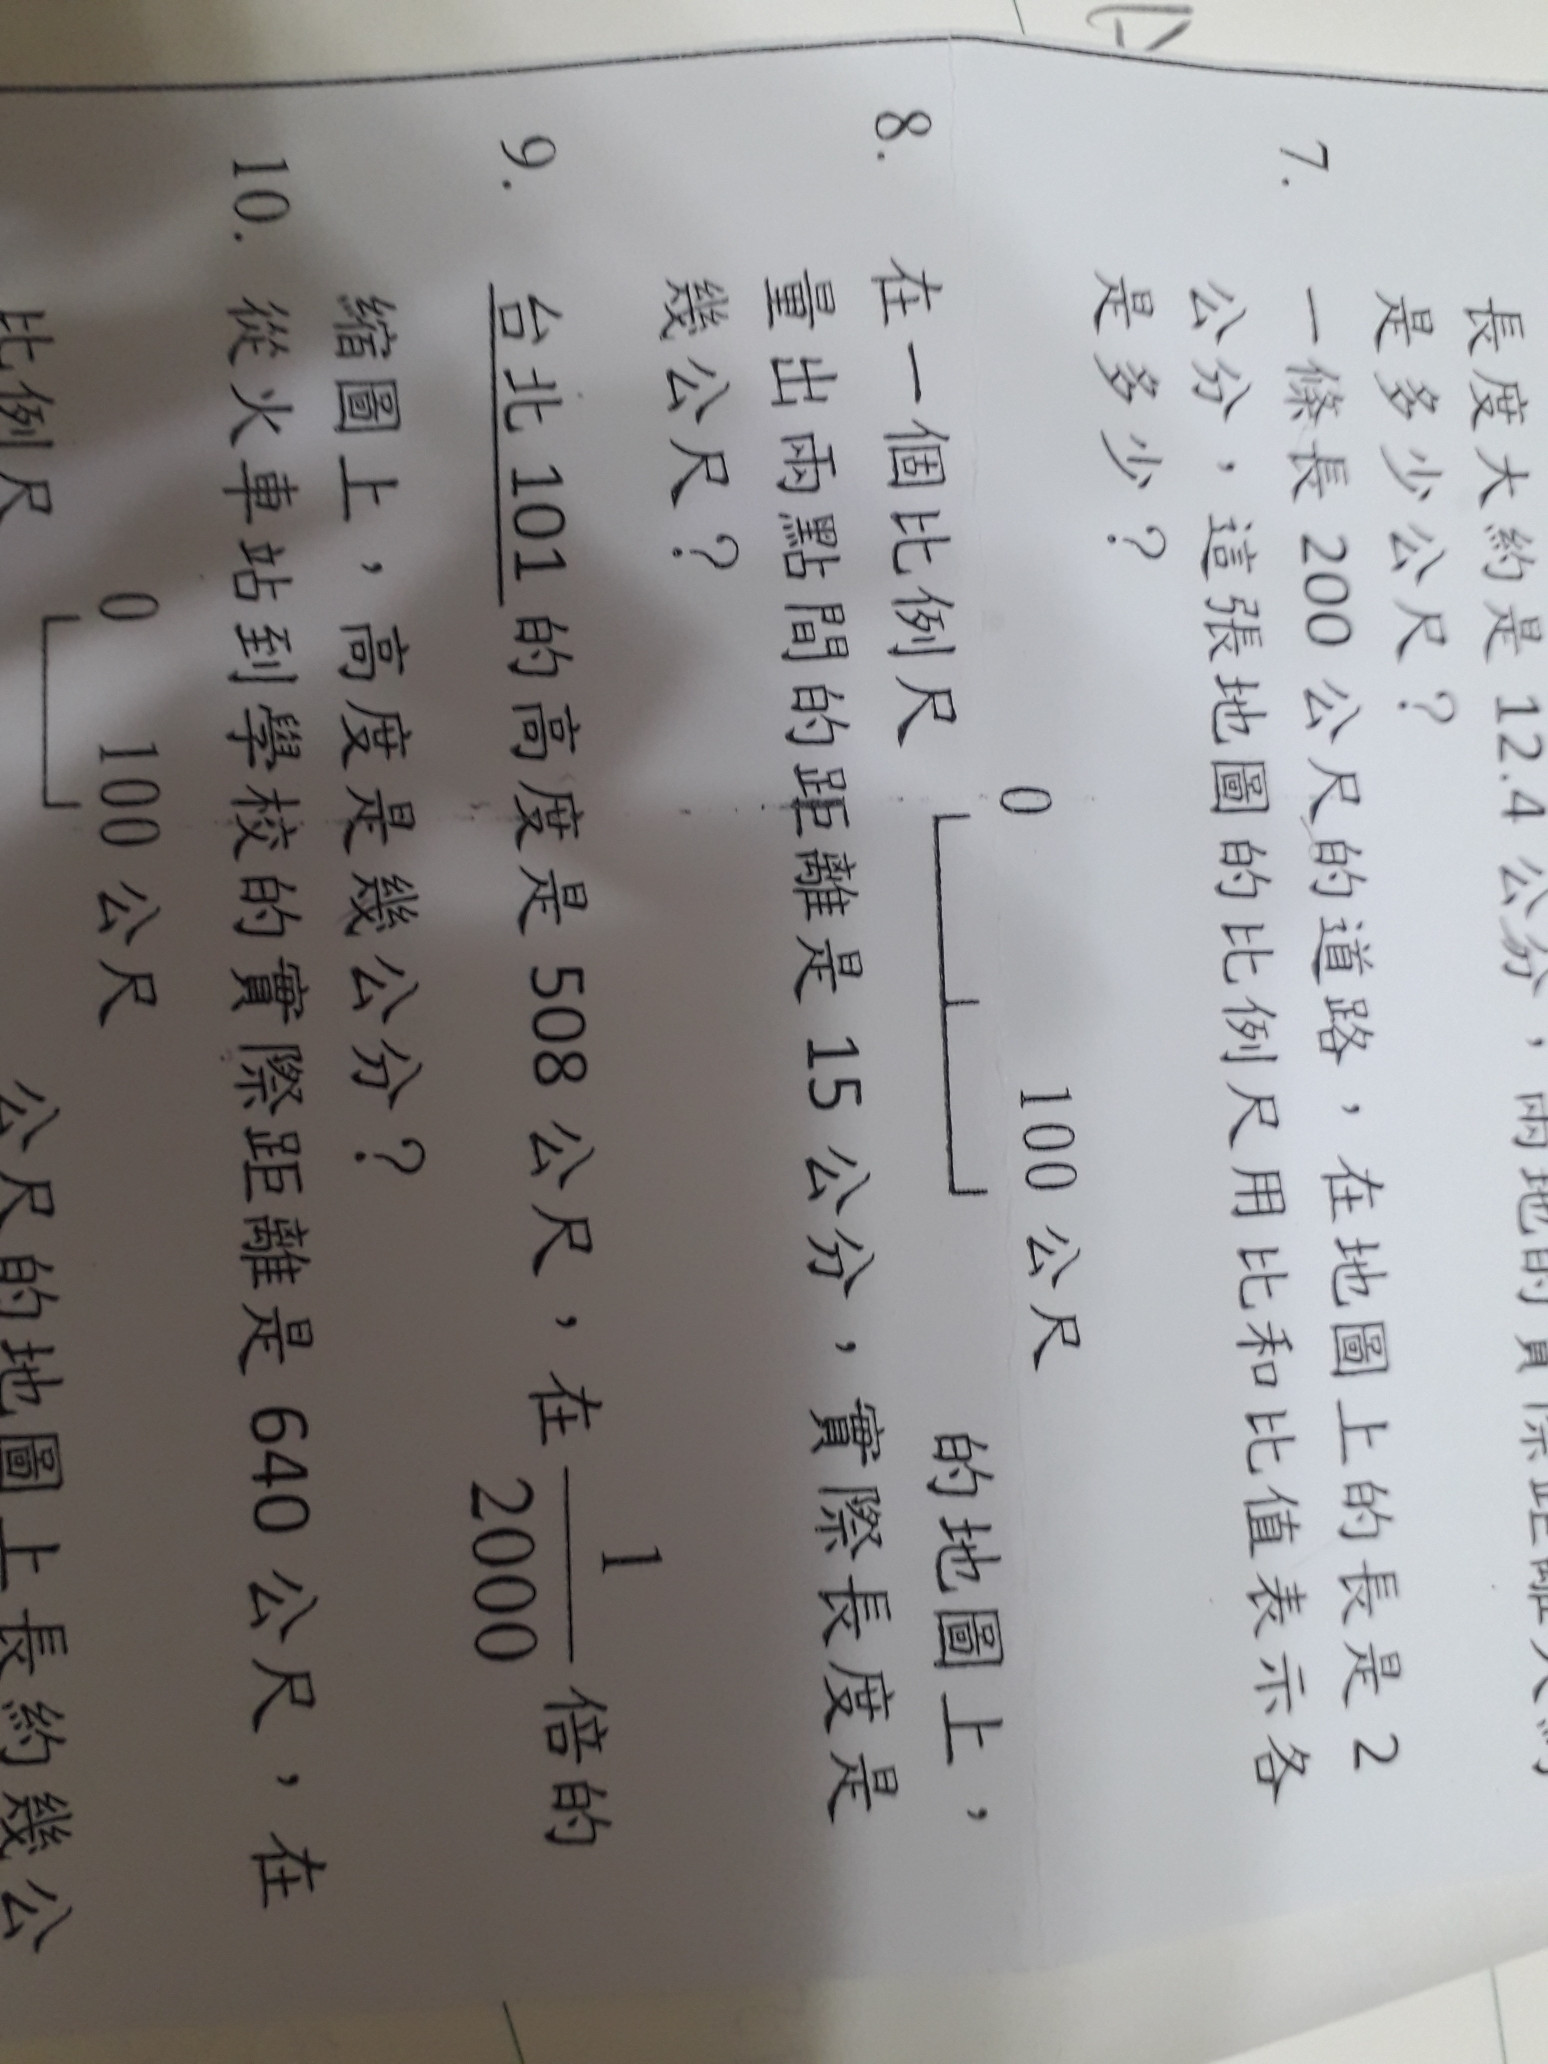 長度大約是 12.4 公分，兩地的實際距離大約
是多少公尺？
7. 一條長 200 公尺的道路，在地圖上的長是 2
公分，這張地圖的比例尺用比和比值表示各
是多少？
0 100 公尺
8. 在一個比例尺 的地圖上，
量出兩點間的距離是 15 公分，實際長度是
幾公尺？
9. 台北 101 的高度是 508 公尺，在 1/2000 倍的
縮圖上，高度是幾公分？
10. 從火車站到學校的實際距離是 640 公尺，在
0 100 公尺
比例尺 公尺的地圖上長約幾公